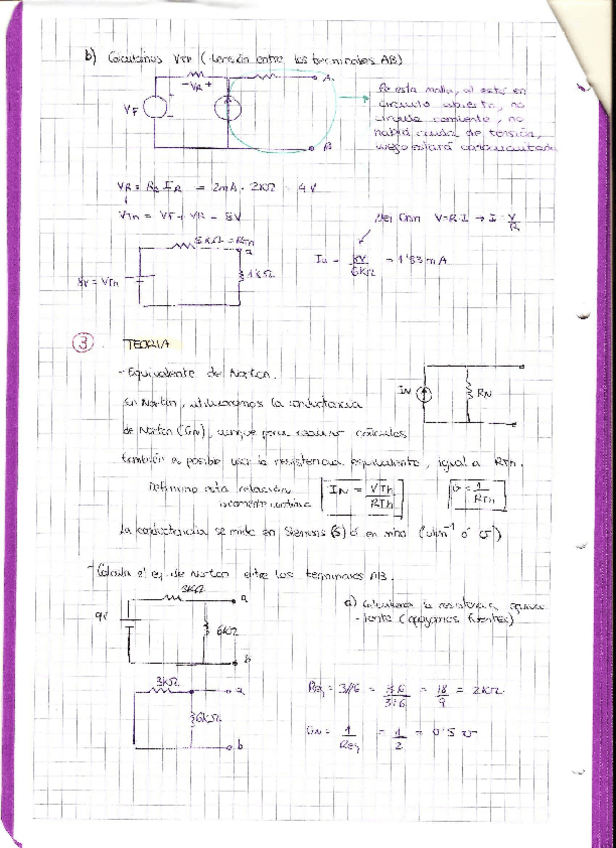 b) Calculamos VTH (tensión entre los terminales AB)
- VR +
A
VF
B
De esta malla, al estar en
circuito abierto, no
circula corriente, no
habrá caída de tensión,
luego estará
VR = R2 IR = 2mA · 2KΩ = 4V
VTh = VF + VR = 8V
Ley Ohm V=R·I → I = V/R
5KΩ = RTh
a
1KΩ
8V = VTh
8V/6KΩ → 1'33mA
3
TEORIA
- Equivalente de Norton.
En Norton, utilizaremos la conductancia
de Norton (GN), aunque para realizar cálculos
también es posible usar la resistencia equivalente, igual a RTh.
IN
RN
Definimos esta relación
IN = VTh/RTh
G = 1/RTh
La conductancia se mide en Siemens (S) ó en mho (ohm⁻¹ ó ℧)
- Calcula el eq. de Norton entre los terminales AB.
3KΩ
a
9V
6KΩ
b
a) Calculamos la resistencia equiva-
lente (apagamos fuentes)
3KΩ
a
6KΩ
b
Req = 3//6 = 3·6/3+6 = 18/9 = 2KΩ
GN = 1/Req = 1/2 = 0'5 ℧